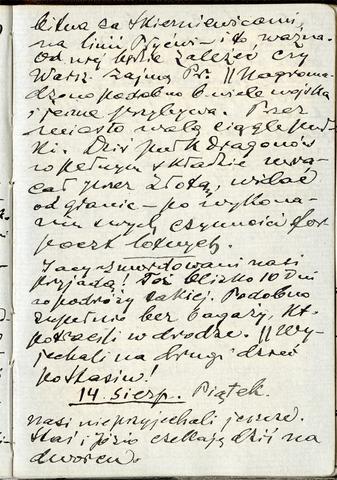 bitwa za Skierniewicami,
na linii Pływi – i to ważna.
Od niej będzie zależeć czy
Warsz. zajmą Pr. || Nagroma-
dzono podobno b. wiele wojska
i jeszcze przybywa. Przez
miasto walą ciągle puł-
ki. Dziś pułk dragonów
w pełnym składzie wra-
cał przez Złotą, widać
od granic – po wykona-
niu swych czynności for-
poczt lotnych.
Jacy zmordowani nasi
przyjadą! Toż blisko 10 dni
w podróży takiej. Podobno
zupełnie bez bagaży, kt.
potracili w drodze. || Wy-
jechali na drugi dzień
po
14. Sierp. Piątek.
Nasi nie przyjechali jeszcze.
Staś i Józio czekają dziś na
dworcu.